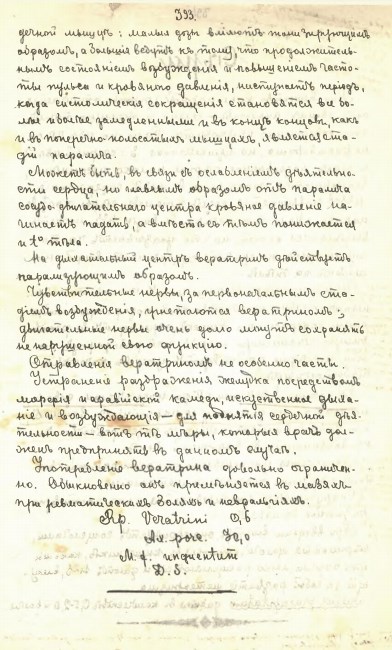 333.
дечной мышцы: малыя дозы вліяютъ тонизирующимъ
образомъ, а большія ведутъ къ тому, что продолжитель-
нымъ состояніемъ возбужденія и повышеніемъ часто-
ты пульса и кровяного давленія, наступаетъ періодъ,
когда систолическія сокращенія становятся все бо-
лѣе и болѣе замедленными и въ концѣ концовъ, какъ
и въ поперечно-полосатыхъ мышцахъ, является ста-
дій паралича.
Можетъ быть, въ связи съ ослабленіемъ дѣятельно-
сти сердца, но главнымъ образомъ отъ паралича
сосудо-двигательнаго центра кровяное давленіе на-
чинаетъ падать, а вмѣстѣ съ тѣмъ понижается
и t° тѣла.
На дыхательный центръ вератринъ дѣйствуетъ
парализующимъ образомъ.
Чувствительные нервы, за первоначальнымъ ста-
діемъ возбужденія, угнетаются вератриномъ;
двигательные нервы очень долго могутъ сохранять
не нарушенной свою функцію.
Отравленія вератриномъ не особенно часты.
Устраненіе раздраженія желудка посредствомъ
и аравійской камеди, искуственное дыха-
ніе и возбуждающія — для поднятія сердечной дѣя-
тельности — вотъ тѣ мѣры, которыя врачъ дол-
женъ предпринять въ данномъ случаѣ.
Употребленіе вератрина довольно ограничен-
но. Обыкновенно онъ примѣняется въ мазяхъ
при ревматическихъ боляхъ и невралгіяхъ.
Rp. Veratrini 0,6
Ax. porc. 30,0
M. f. unguentum
D. S.